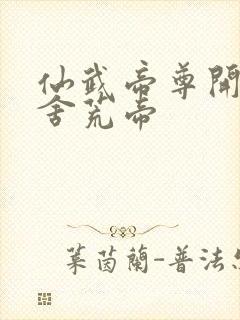 仙武帝尊開
舍荒帝
葉茵蘭-普法